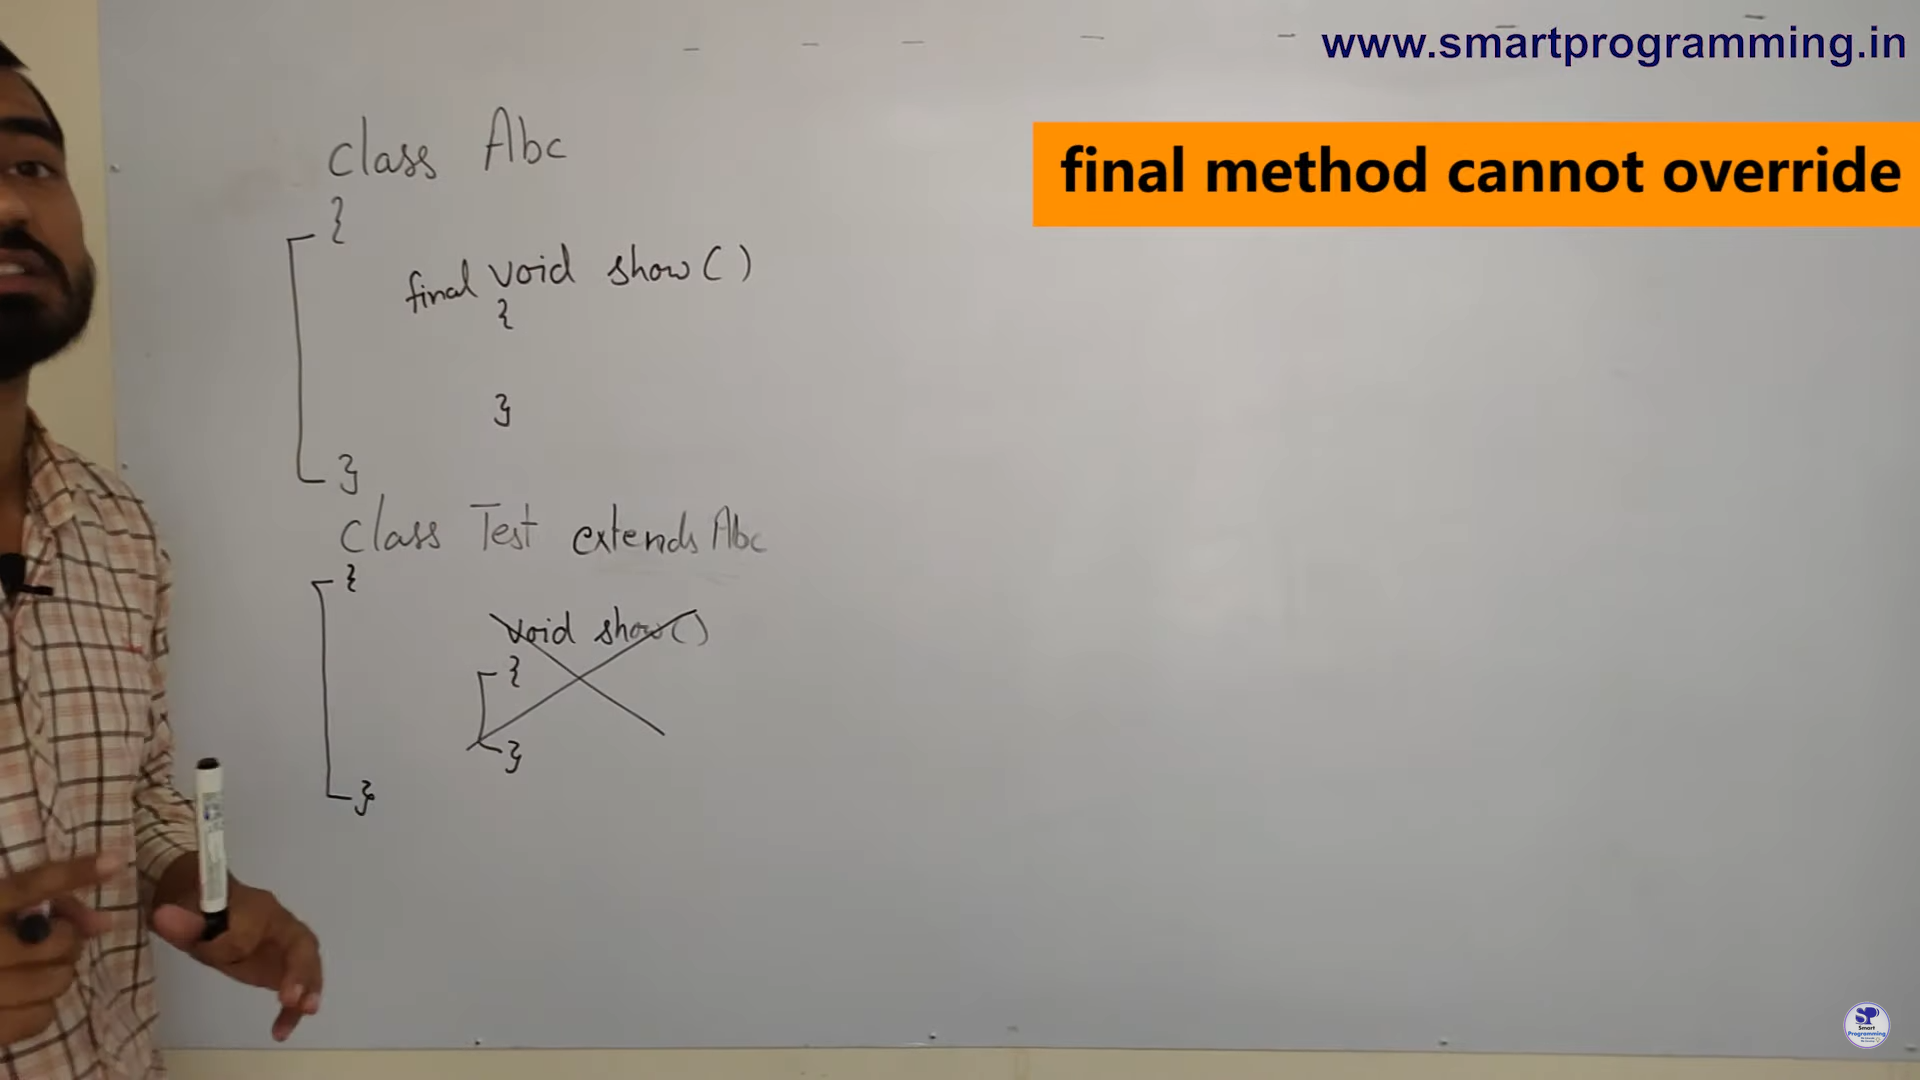 www.smartprogramming.in
final method cannot override
class Abc
{
final void show()
{
}
}
class Test extends Abc
{
void show()
{
}
}
SP
Smart
Programming